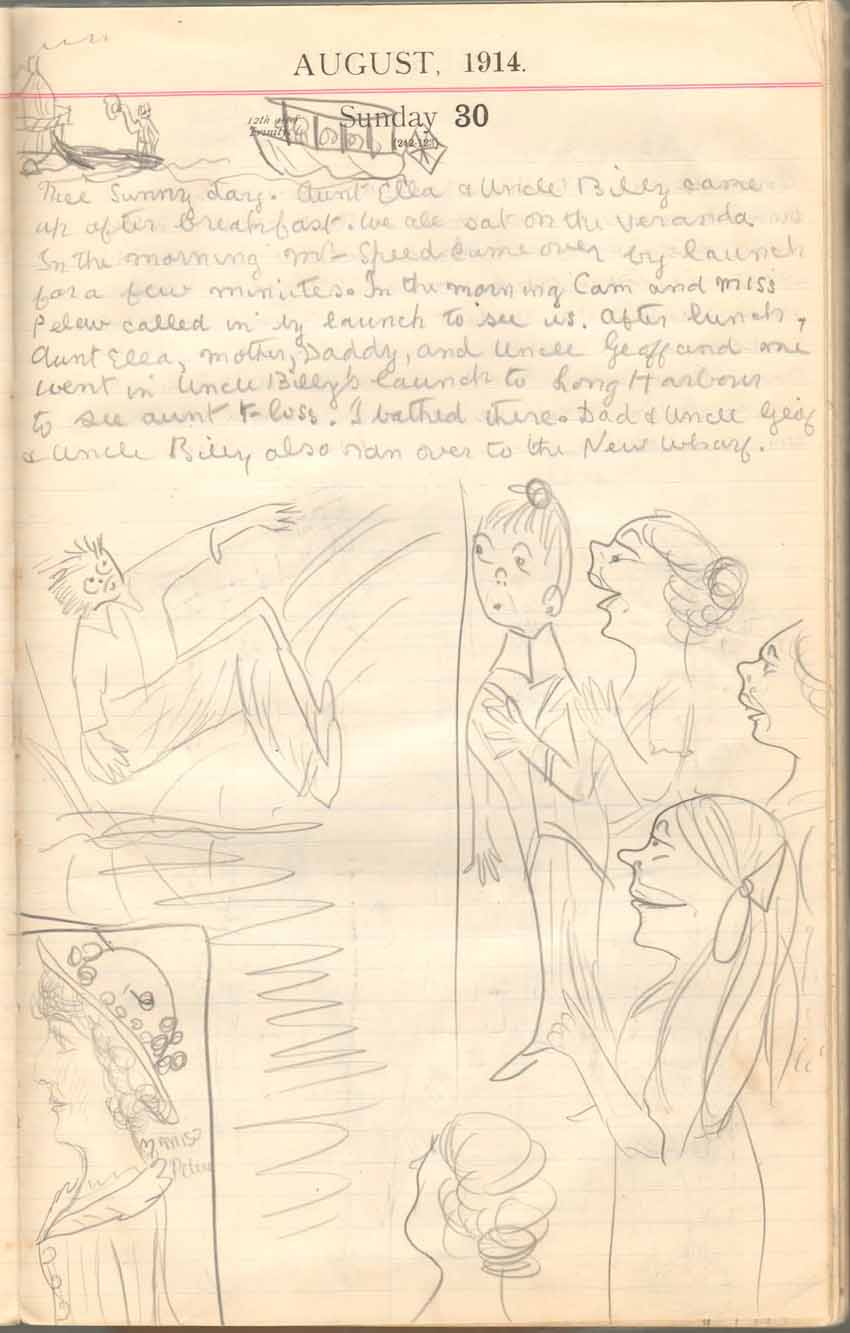 AUGUST, 1914.
12th aft
Trinity
Sunday 30
(242-123)
Nice Sunny day. Aunt Ella & Uncle Billy came
up after breakfast. We all sat on the veranda.
In the morning Mr Speed came over by launch
for a few minutes. In the morning Cam and Miss
Pelew called in by launch to see us. After lunch,
Aunt Ella, Mother, Daddy, and Uncle Geoff and me
went in Uncle Billy's launch to Long Harbour
to see aunt Floss. I bathed there. Dad & Uncle Geof
& Uncle Billy also ran over to the New Wharf.
Miss